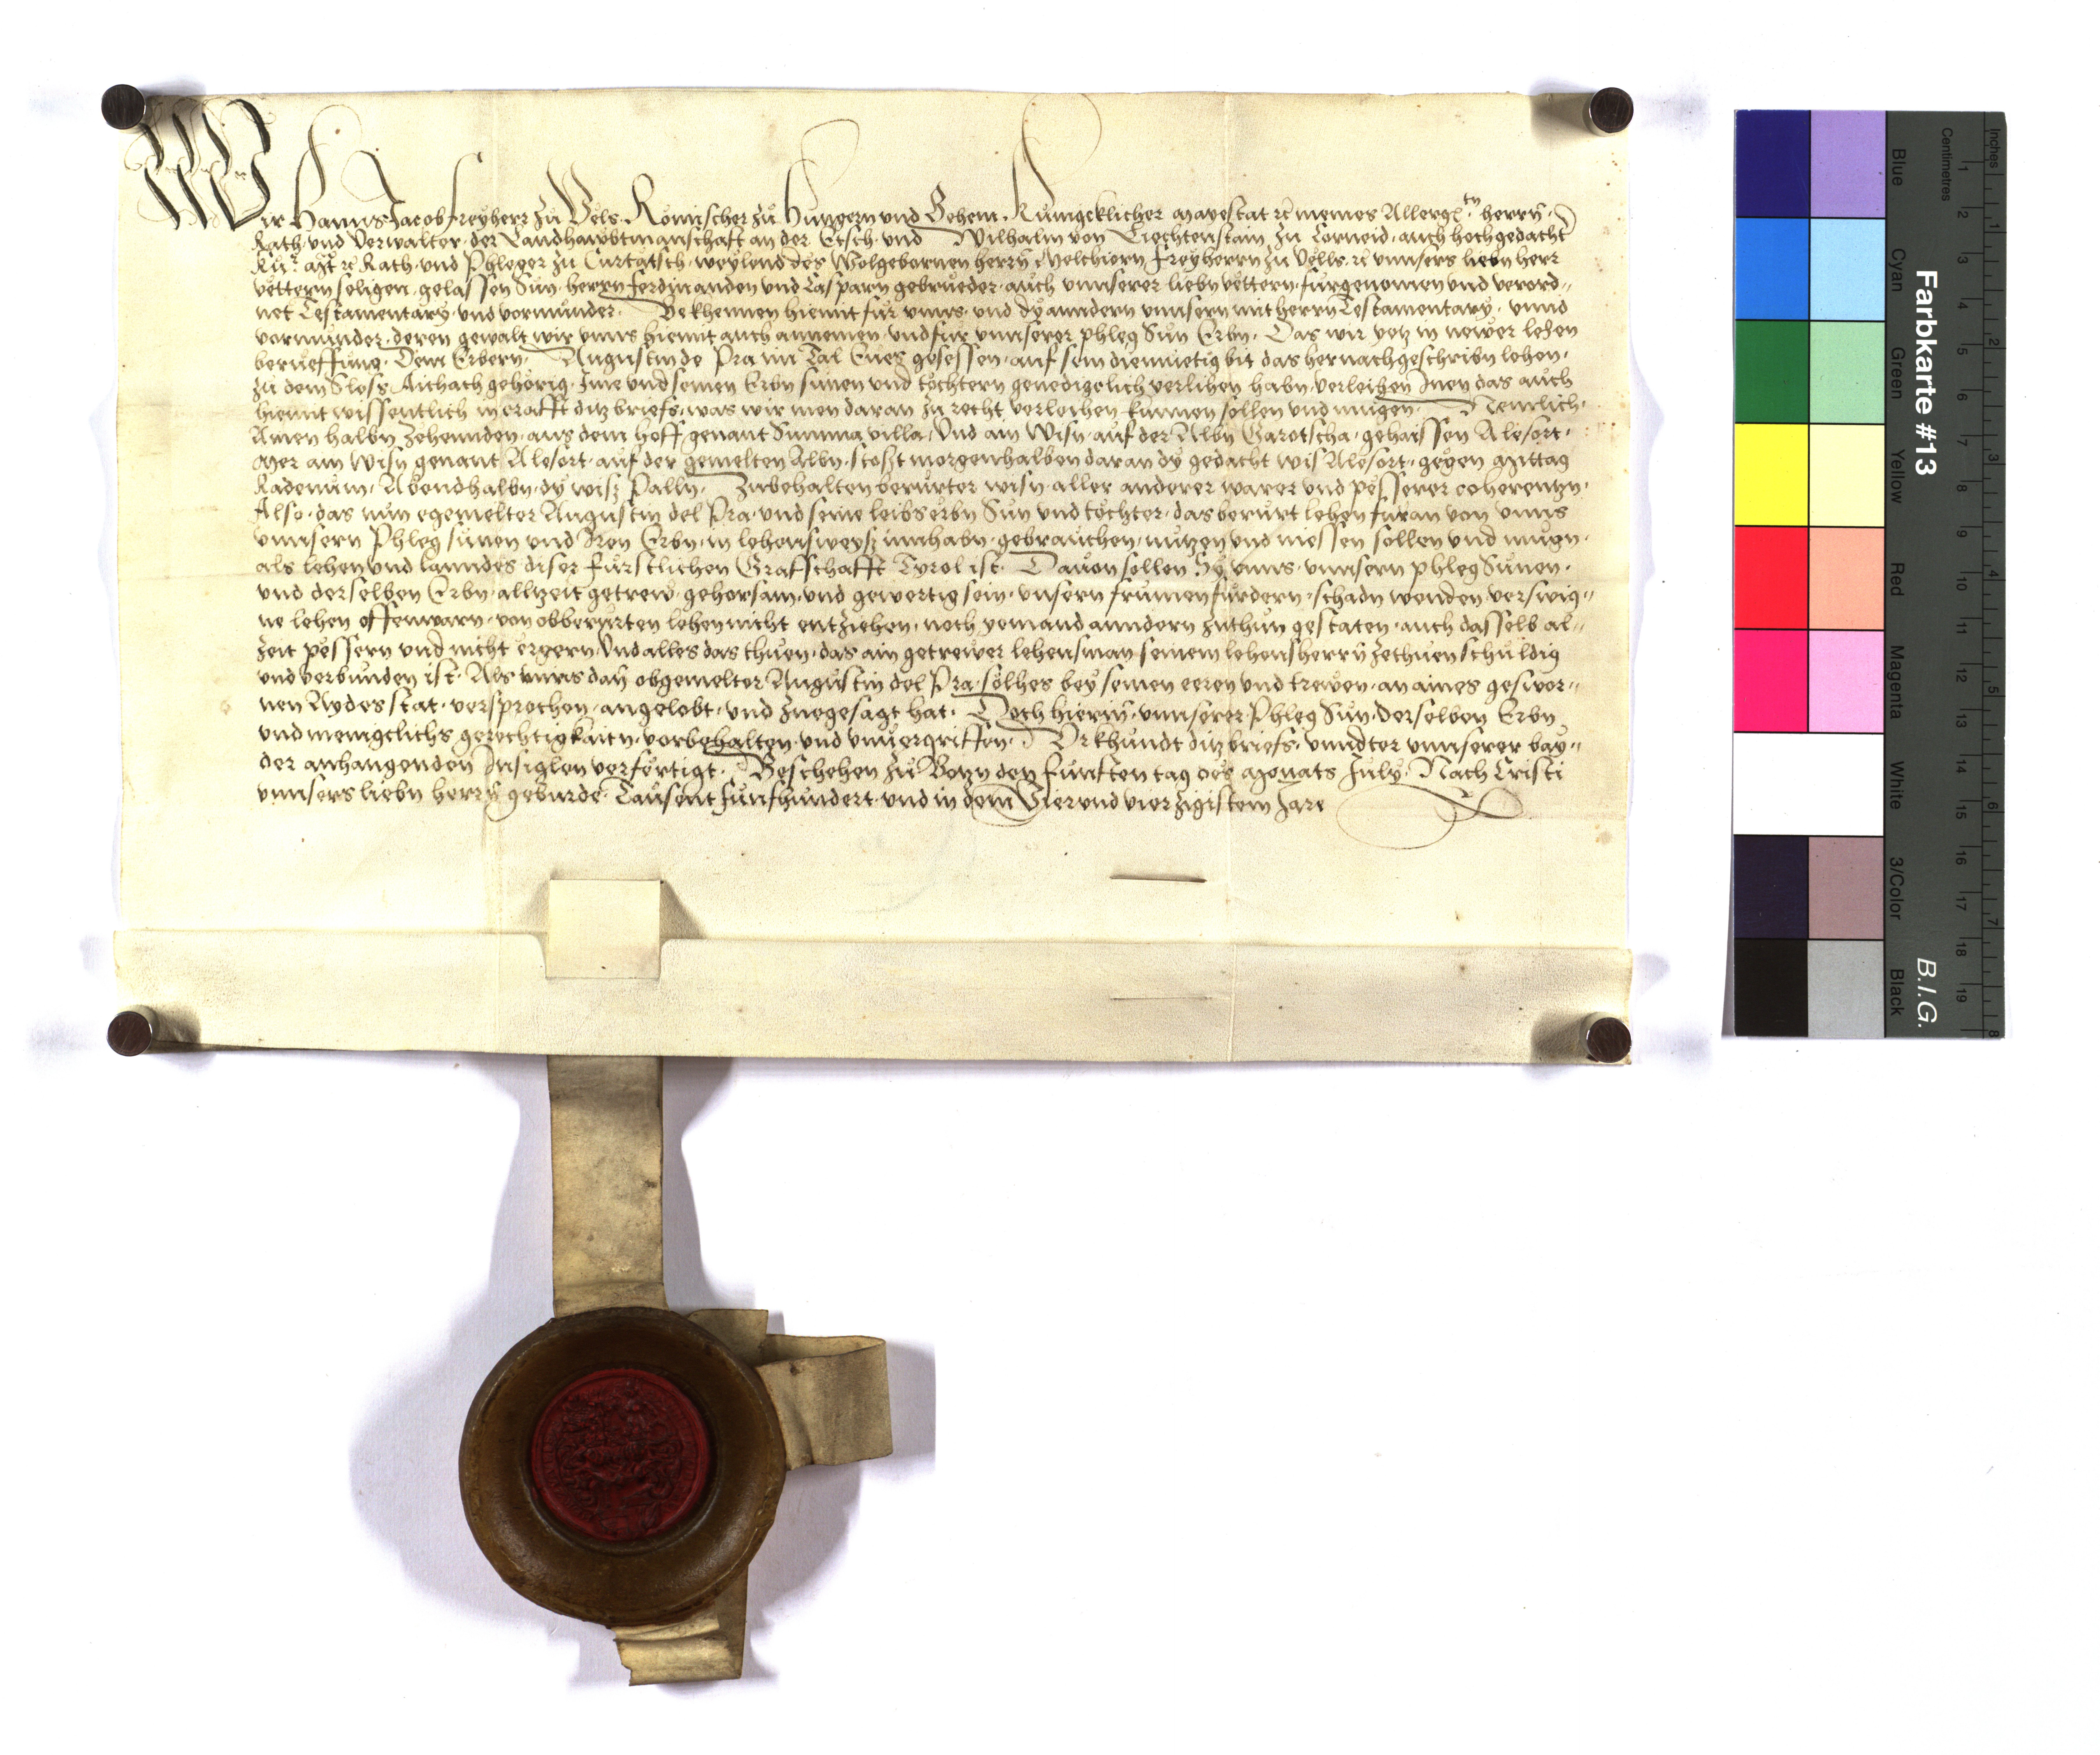 Wir Hanns Jacob Freyherr zu Vels Römischer zu Hungern und Behem Kunigcklicher Mayestat rc meines Allergn herrn
Rath und Verwalter der Landhawbtmanschaft an der Etsch und Wilhalm von Liechtenstain zu Corneid auch hochgedacht
Rath und Phleger zu Curtatsch weylend des Wolgebornen herrn Melchiorn Freyherrn zu Vells rc unnsers liebn herr
vettern seligen gelassen Sün herrn Ferdinanden und Casparn gebrueder auch unnserer liebn vettern fürgenomen und verord=
net Testamentary und vormunder Bekhennen hiemit für unns und dy anndern unnsern mit herrn Testamentary unnd
vormunder deren gewalt wir unns hiemit auch annemen und für unnserer phleg Sün Erbn Das wir yetz in newer lehen
berueffung Dem Erbern Augustin de Pra im Tal Eues gesessen auf sein diemuetig bit das hernachgeschribn lehen
zu dem Sloss Aichach gehörig Ime und seinen Erbn sünen und töchtern genedigclich verlihen habn verleihen Inen das auch
hiemit wissentlich in crafft ditz briefs was wir inen daran zu recht verleihen künnen sollen und mügen Nemlich
Ainen halbn Zehennden aus dem hoff genant Summavilla Und ain Wisn auf der Albn Garotscha gehaissen Alesort
Mer ain Wisn genant Alesort auf der gemelten Albn stosst morgenhalben daran dy gedacht wis Alesort gegen Mittag
Abendhalbn dy wiss Palln Zubehalten berürter wisn aller anderer warer und pesserer coherentzn
Also das nün egemelter Augustin del Pra und seine leibserbn Sün und töchter das berürt lehen füran von unns
unnsern Phleg sünen und Iren Erbn in lehensweyss innhabn gebrauchen nutzen und niessen sollen und mugn
als lehen und lanndes diser Fürstlichen Grafschafft Tyrol ist Dauon sollen Sy unns unnsern phleg Sünen
und derselben Erbn allzeit getrew gehorsam und gewertig sein unsern frumen fürdern schadn wenden verswig=
ne lehen offenwarn von obberürten lehen nicht entziehen noch yemand anndern zuthun gestaten auch dasselb al=
zeit pessern und nicht ergern Und alles das thuen das ain getrewer lehensman seinem lehensherrn zethuen schuldig
und verbunden ist Als unns dan obgemelter Augustin del Pra solhes bey seinen eeren und trewen an aines geswor=
nen Aydes stat versprochen angelobt und zuegesagt hat Doch hierin unnserer Phleg Sün derselben Erbn
und menigclichs gerechtigkaitn vorbehalten und unuergriffen Urkhundt ditz briefs unndter unnserer bay=
der anhangenden Insiglen verfertigt Beschehen zu Botzn den Funften tag des Monats July Nach Cristi
unnsers liebn herrn geburde Tausent funfhundert und in dem Vierundvierzigistem Jare
Farbkarte #13
B.I.G.
Blue
Cyan
Green
Yellow
Red
Magenta
White
3/Color
Black
Centimetres
Inches
1 2 3 4 5 6 7 8 9 10 11 12 13 14 15 16 17 18 19
1 2 3 4 5 6 7 8